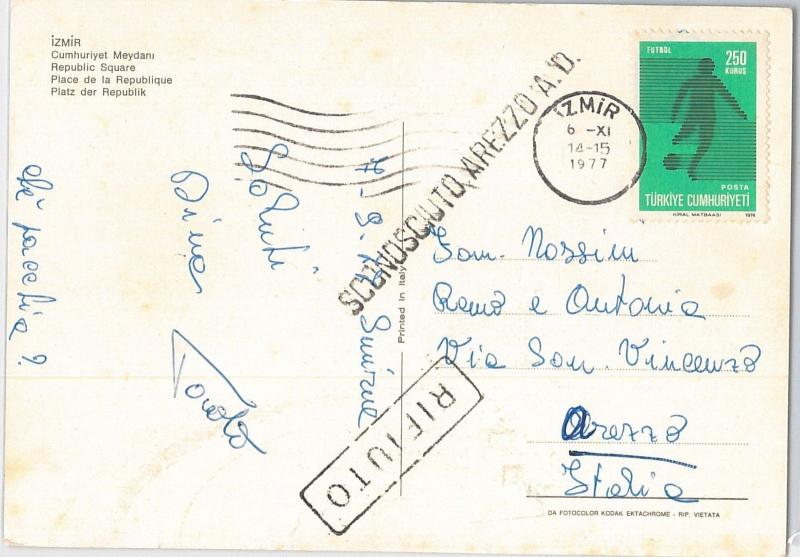 İZMİR
Cumhuriyet Meydanı
Republic Square
Place de la Republique
Platz der Republik
FUTBOL
250
KURUŞ
POSTA
TÜRKİYE CUMHURİYETİ
HIRAL MATBAASI 1974
İZMİR
6 -XI
14-15
1977
SCONOSCIUTO AREZZO A.D.
RIFIUTO
Printed in Italy
Smirne
Saluti
che pacchia?
Fam. Nossim
Remo e Antonia
Via San. Vincenzo
Arezzo
Italia
DA FOTOCOLOR KODAK EKTACHROME - RIP. VIETATA